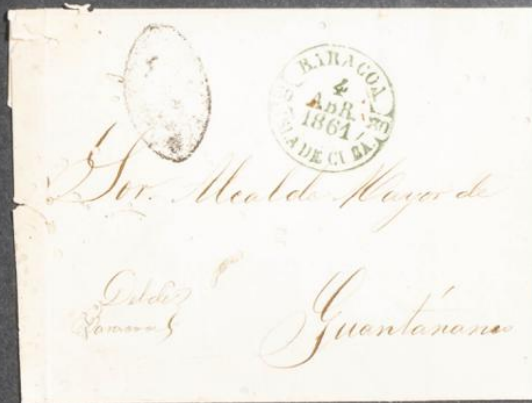 BARACOA
4
ABR.
1861
ISLA DE CUBA.
Sor. Alcalde Mayor de
Guantánamo